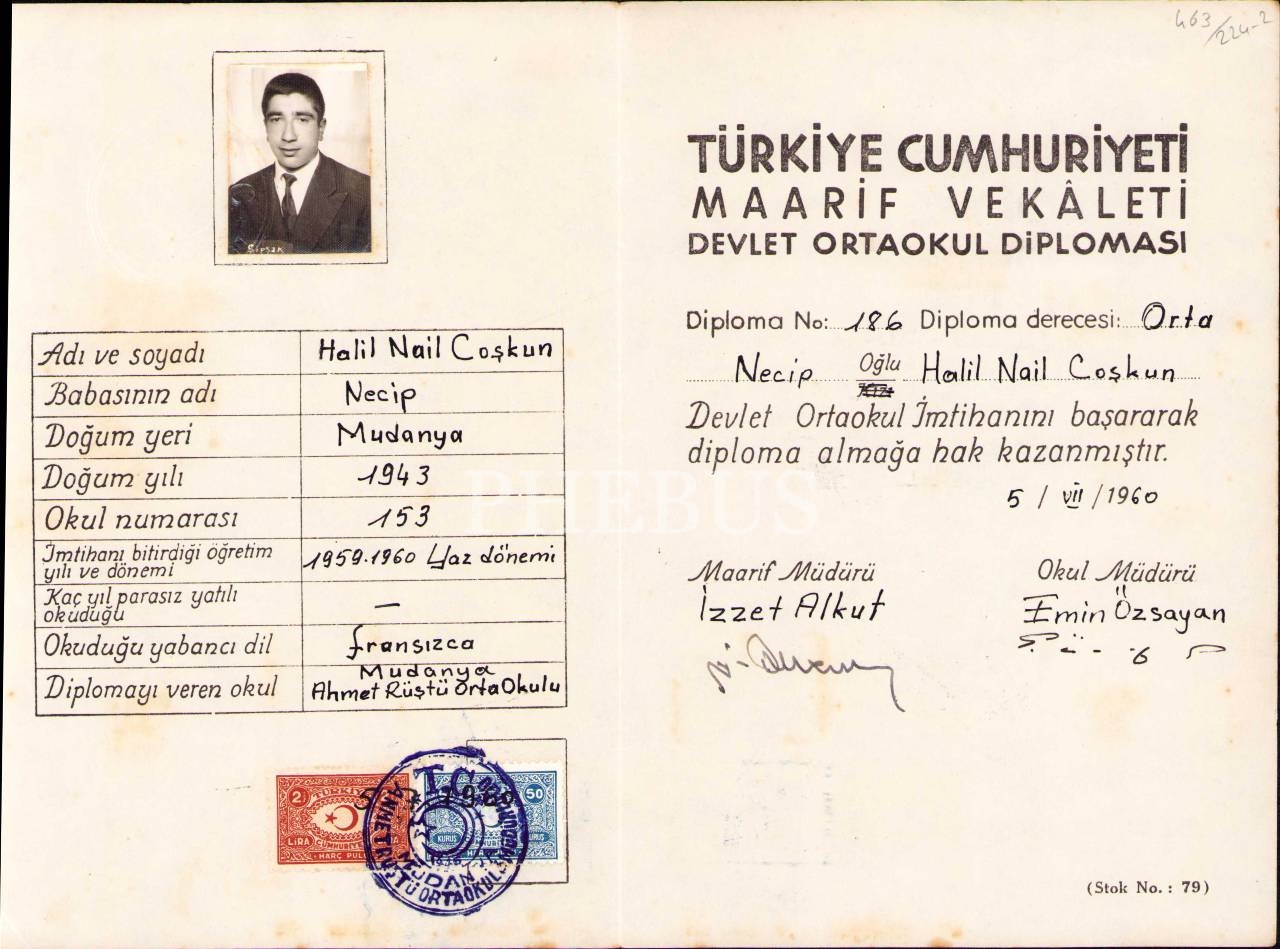 Sipsak
Adı ve soyadı Halil Nail Coşkun
Babasının adı Necip
Doğum yeri Mudanya
Doğum yılı 1943
Okul numarası 153
İmtihanı bitirdiği öğretim
yılı ve dönemi 1959.1960 Yaz dönemi
Kaç yıl parasız yatılı
okuduğu —
Okuduğu yabancı dil fransızca
Diplomayı veren okul Mudanya
Ahmet Rüştü OrtaOkulu
2½ TÜRKİYE
LİRA
HARÇ PULU
50
KURUŞ
T.C.
AHMET RÜŞTÜ ORTAOKULU
463/224-2
TÜRKİYE CUMHURİYETİ
MAARİF VEKÂLETİ
DEVLET ORTAOKUL DİPLOMASI
Diploma No: 186 Diploma derecesi: Orta
Necip Oğlu Halil Nail Coşkun
Devlet Ortaokul İmtihanını başararak
diploma almağa hak kazanmıştır.
5 / VII / 1960
Maarif Müdürü Okul Müdürü
İzzet Alkut Emin Özsayan
(Stok No. : 79)
PHEBUS